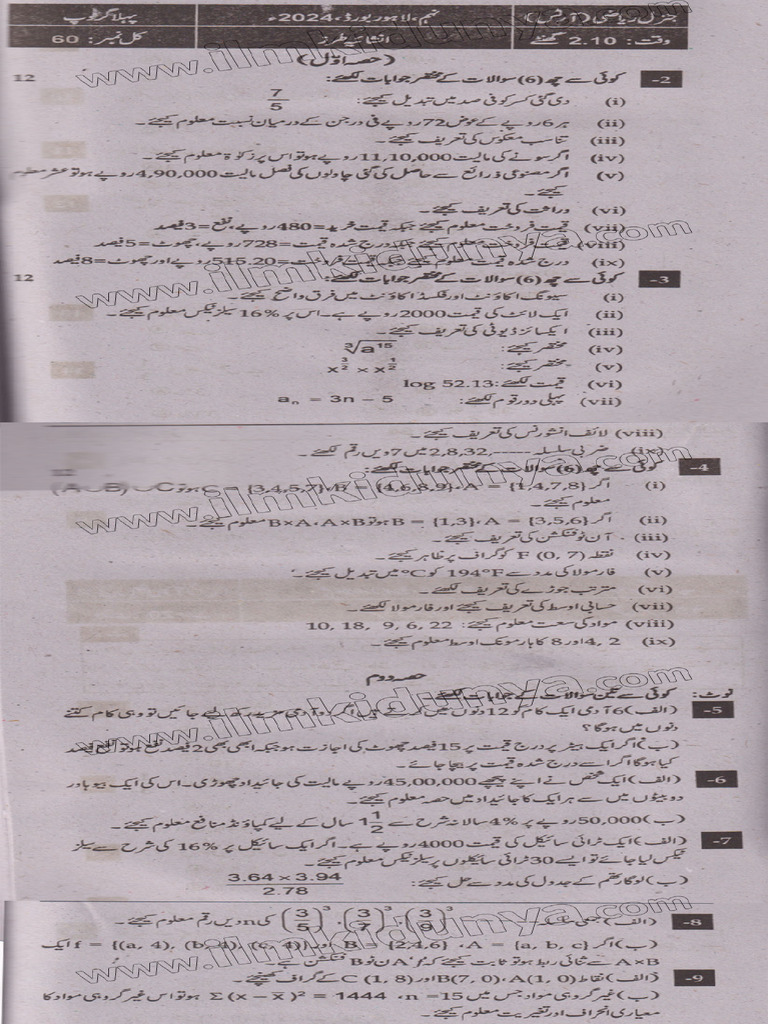 جنرل ریاضی (آرٹس) نہم، لاہور بورڈ، 2024ء پہلا گروپ
وقت: 2.10 گھنٹے انشائیہ طرز کل نمبر: 60
(حصہ اوّل)
2- کوئی سے چھ (6) سوالات کے مختصر جوابات لکھئے: 12
(i) دی گئی کسر کو فی صد میں تبدیل کیجئے: 7/5
(ii) ہر 6 روپے کے عوض 72 روپے فی درجن کے درمیان نسبت معلوم کیجئے۔
(iii) تناسب معکوس کی تعریف کیجئے۔
(iv) اگر سونے کی مالیت 11,10,000 روپے ہو تو اس پر زکوٰۃ معلوم کیجئے۔
(v) اگر مصنوعی ذرائع سے حاصل کی گئی چاولوں کی فصل مالیت 4,90,000 روپے ہو تو عشر معلوم
کیجئے۔
(vi) وراثت کی تعریف کیجئے۔
(vii) قیمت فروخت معلوم کیجئے جبکہ قیمت خرید = 480 روپے، نفع = 3 فیصد
(viii) قیمت فروخت معلوم کیجئے جبکہ درج شدہ قیمت = 728 روپے، چھوٹ = 5 فیصد
(ix) درج شدہ قیمت معلوم کیجئے جبکہ قیمت فروخت = 515.20 روپے اور چھوٹ = 8 فیصد
3- کوئی سے چھ (6) سوالات کے مختصر جوابات لکھئے: 12
(i) سیونگ اکاؤنٹ اور فکسڈ اکاؤنٹ میں فرق واضح کیجئے۔
(ii) ایک لائٹ کی قیمت 2000 روپے ہے۔ اس پر 16% سیلز ٹیکس معلوم کیجئے۔
(iii) ایکسائز ڈیوٹی کی تعریف کیجئے۔
(iv) مختصر کیجئے: ∛a¹⁵
(v) مختصر کیجئے: x^(3/2) × x^(1/2)
(vi) قیمت لکھئے: log 52.13
(vii) پہلی دو رقوم لکھئے: aₙ = 3n − 5
(viii) لائف انشورنس کی تعریف کیجئے۔
(ix) ضربی سلسلہ 2,8,32,----- میں 7ویں رقم لکھئے۔
4- کوئی سے چھ (6) سوالات کے مختصر جوابات لکھئے: 12
(i) اگر A = {1,4,7,8}، B = {4,6,8,9}، C = {3,4,5,7} ہو تو (A∪B)∪C
معلوم کیجئے۔
(ii) اگر A = {3,5,6}، B = {1,3} ہو تو A×B، B×A معلوم کیجئے۔
(iii) آن ٹو فنکشن کی تعریف کیجئے۔
(iv) نقطہ F (0, 7) کو گراف پر ظاہر کیجئے۔
(v) فارمولا کی مدد سے 194°F کو °C میں تبدیل کیجئے۔
(vi) مترتب جوڑے کی تعریف لکھئے۔
(vii) حسابی اوسط کی تعریف کیجئے اور فارمولا لکھئے۔
(viii) مواد کی سعت معلوم کیجئے: 10, 18, 9, 6, 22
(ix) 2، 4 اور 8 کا ہارمونک اوسط معلوم کیجئے۔
حصہ دوم
نوٹ: کوئی سے تین سوالات کے جوابات لکھئے۔
5- (الف) 6 آدمی ایک کام کو 12 دنوں میں کرتے ہیں اگر دو آدمی مزید لگا لیے جائیں تو وہی کام کتنے
دنوں میں ہو گا؟
(ب) اگر ایک ہیٹر پر درج قیمت پر 15 فیصد چھوٹ کی اجازت ہو جبکہ ابھی بھی 2 فیصد نفع ہو تو نفع فیصد
کیا ہو گا اگر اسے درج شدہ قیمت پر بیچا جائے۔
6- (الف) ایک شخص نے اپنے پیچھے 45,00,000 روپے مالیت کی جائیداد چھوڑی۔ اس کی ایک بیوہ اور
دو بیٹوں میں سے ہر ایک کا جائیداد میں حصہ معلوم کیجئے۔
(ب) 50,000 روپے پر 4% سالانہ شرح سے 1 1/2 سال کے لیے کمپاؤنڈ منافع معلوم کیجئے۔
7- (الف) ایک ٹرائی سائیکل کی قیمت 4000 روپے ہے۔ اگر ایک سائیکل پر 16% کی شرح سے سیلز
ٹیکس لیا جائے تو ایسے 30 ٹرائی سائیکلوں پر سیلز ٹیکس معلوم کیجئے۔
(ب) لوگارتھم کے جدول کی مدد سے حل کیجئے: (3.64 × 3.94)/2.78
8- (الف) سلسلہ (3/5)³، (3/7)³، (3/9)³ کی nویں رقم معلوم کیجئے۔
(ب) اگر A = {a, b, c}، B = {2,4,6} اور f = {(a, 4), (b, 4), (c, 4)} ایک
A×B سے ثنائی ربط ہو تو ثابت کیجئے کہ f، A ان ٹو B فنکشن ہے۔
9- (الف) نقاط A(1, 0)، B(7, 0) اور C (1, 8) کے گراف کھینچئے۔
(ب) غیر گروہی مواد جس میں n = 15، Σ(x − x̄)² = 1444 ہو تو اس غیر گروہی مواد کا
معیاری انحراف اور تغیریت معلوم کیجئے۔
www.ilmkidunya.com
www.ilmkidunya.com
www.ilmkidunya.com
www.ilmkidunya.com
www.ilmkidunya.com